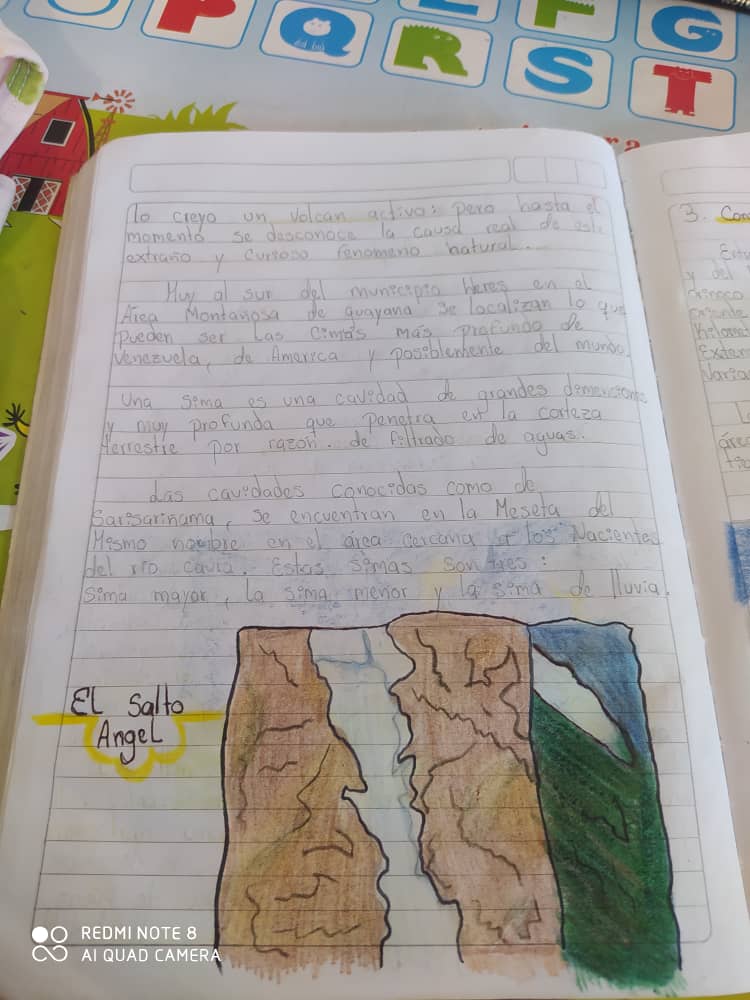 P Q R S F G T
lo creyo un volcan activo; pero hasta el
momento se desconoce la causa real de este
extraño y curioso fenomeno natural...
Muy al sur del municipio Heres en el
Área Montañosa de guayana se localizan lo que
Pueden ser Las Cimas mas profundo de
Venezuela, de America y posiblemente del mundo.
Una sima es una cavidad de grandes dimensiones
y muy profunda que penetra en la corteza
terrestre por razon. de filtrado de aguas.
Las cavidades conocidas como de
Sarisariñama, se encuentran en la Meseta del
Mismo nombre en el área cercana a los Nacientes
del río Caura. Estas Simas son tres:
Sima mayor, la sima menor y la sima de lluvia.
El Salto
Angel
3. Con
y del
Orinoco
oriente
Kilome
Exten
Varia
área
REDMI NOTE 8
AI QUAD CAMERA